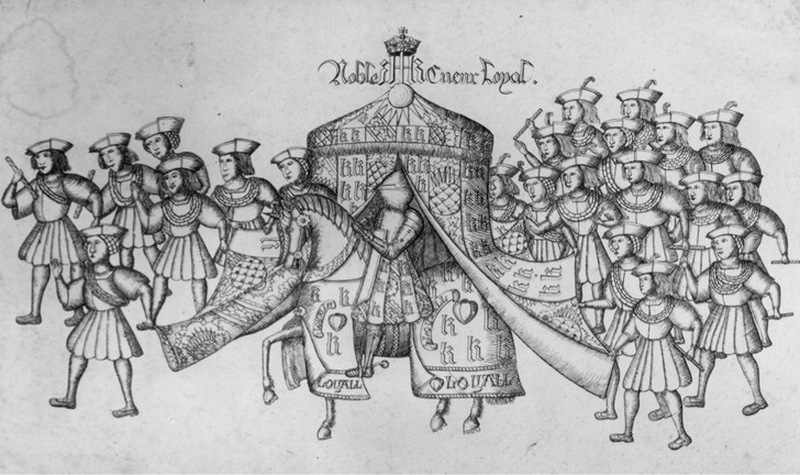 Noble Cueur Loyal.
LOYALL
LOYALL